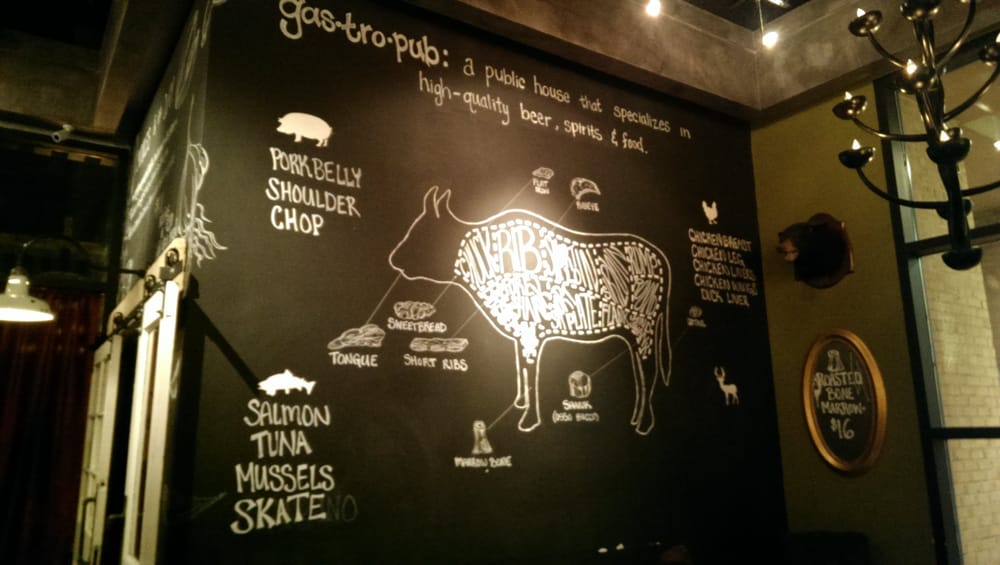 gas·tro·pub: a public house that specializes in
high-quality beer, spirits & food.
PORKBELLY
SHOULDER
CHOP
FLAT
IRON
RIBEYE
RIB
PLATE
SWEETBREAD
TONGUE
SHORT RIBS
SHANK
(OSSO BUCCO)
MARROW BONE
CHICKEN BREAST
CHICKEN LEG
CHICKEN LIVERS
CHICKEN WINGS
DUCK LIVER
OXTAIL
SALMON
TUNA
MUSSELS
SKATE
ROASTED
BONE
MARROW
$16